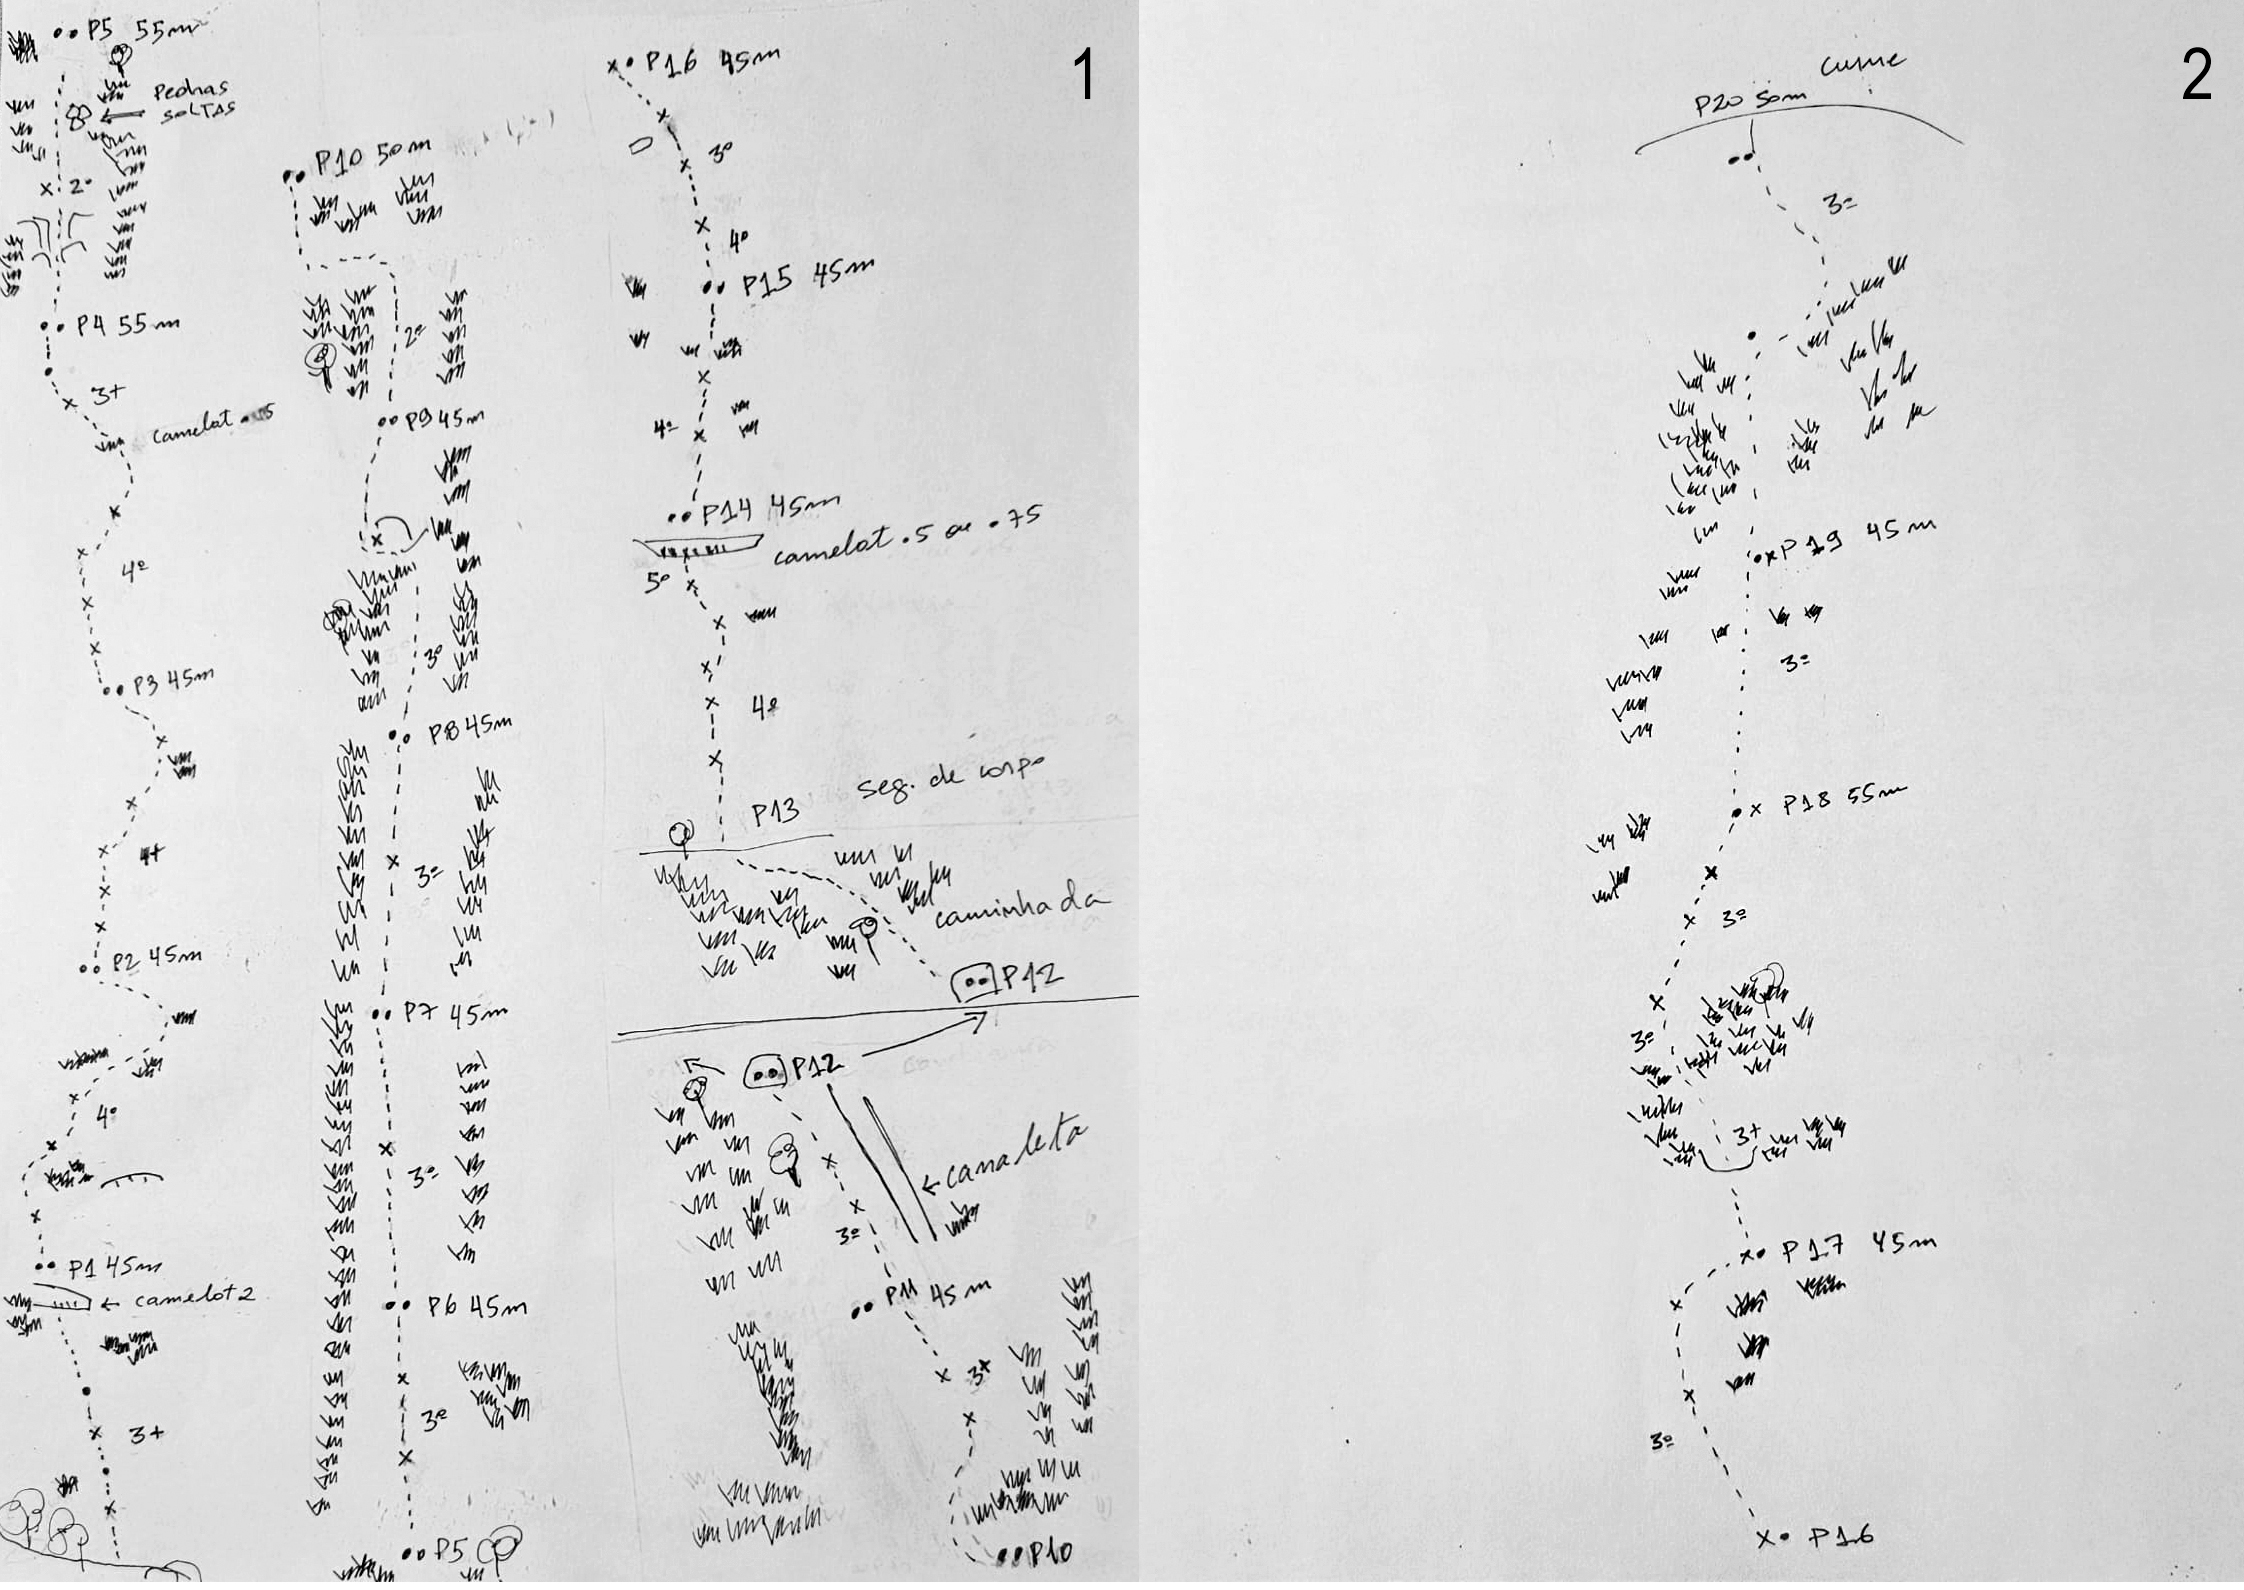 1
P5 55m
Pedras
soltas
2º
P4 55m
3+
camelot .5
4º
P3 45m
4+
P2 45m
4º
P1 45m
← camelot 2
3+
P10 50m
2º
P9 45m
3º
P8 45m
3º
P7 45m
3º
P6 45m
3º
P5
P16 45m
3º
4º
P15 45m
4º
P14 45m
camelot .5 ou .75
5º
4º
seg. de corpo
P13
caminhada
P12
P12
← canaleta
3º
P11 45m
3+
P10
2
cume
P20 50m
3º
P19 45m
3º
P18 55m
3º
3º
3+
P17 45m
3º
P16